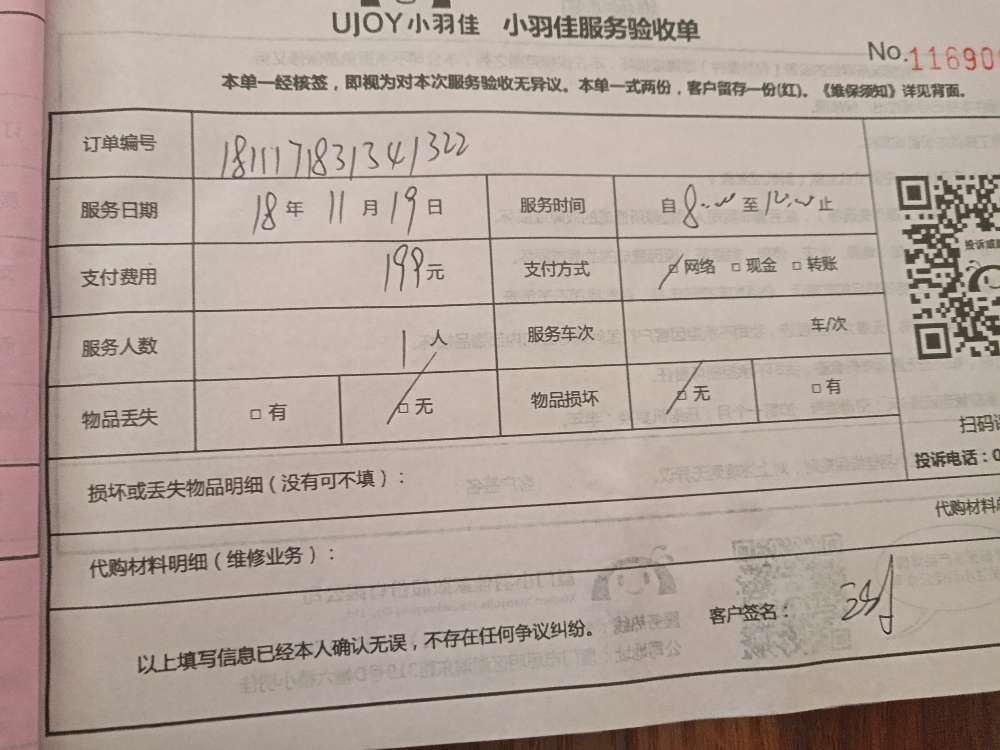 UJOY小羽佳 小羽佳服务验收单
No.116900
本单一经核签，即视为对本次服务验收无异议。本单一式两份，客户留存一份(红)。《维保须知》详见背面。
订单编号 1811171831341322
服务日期 18年 11月 19日 服务时间 自8:00至10:00止
支付费用 199元 支付方式 □网络 □现金 □转账
服务人数 1人 服务车次 车/次
物品丢失 □有 □无 物品损坏 □无 □有
扫码
投诉电话：0
损坏或丢失物品明细（没有可不填）：
代购材料
代购材料明细（维修业务）：
客户签名：
以上填写信息已经本人确认无误，不存在任何争议纠纷。